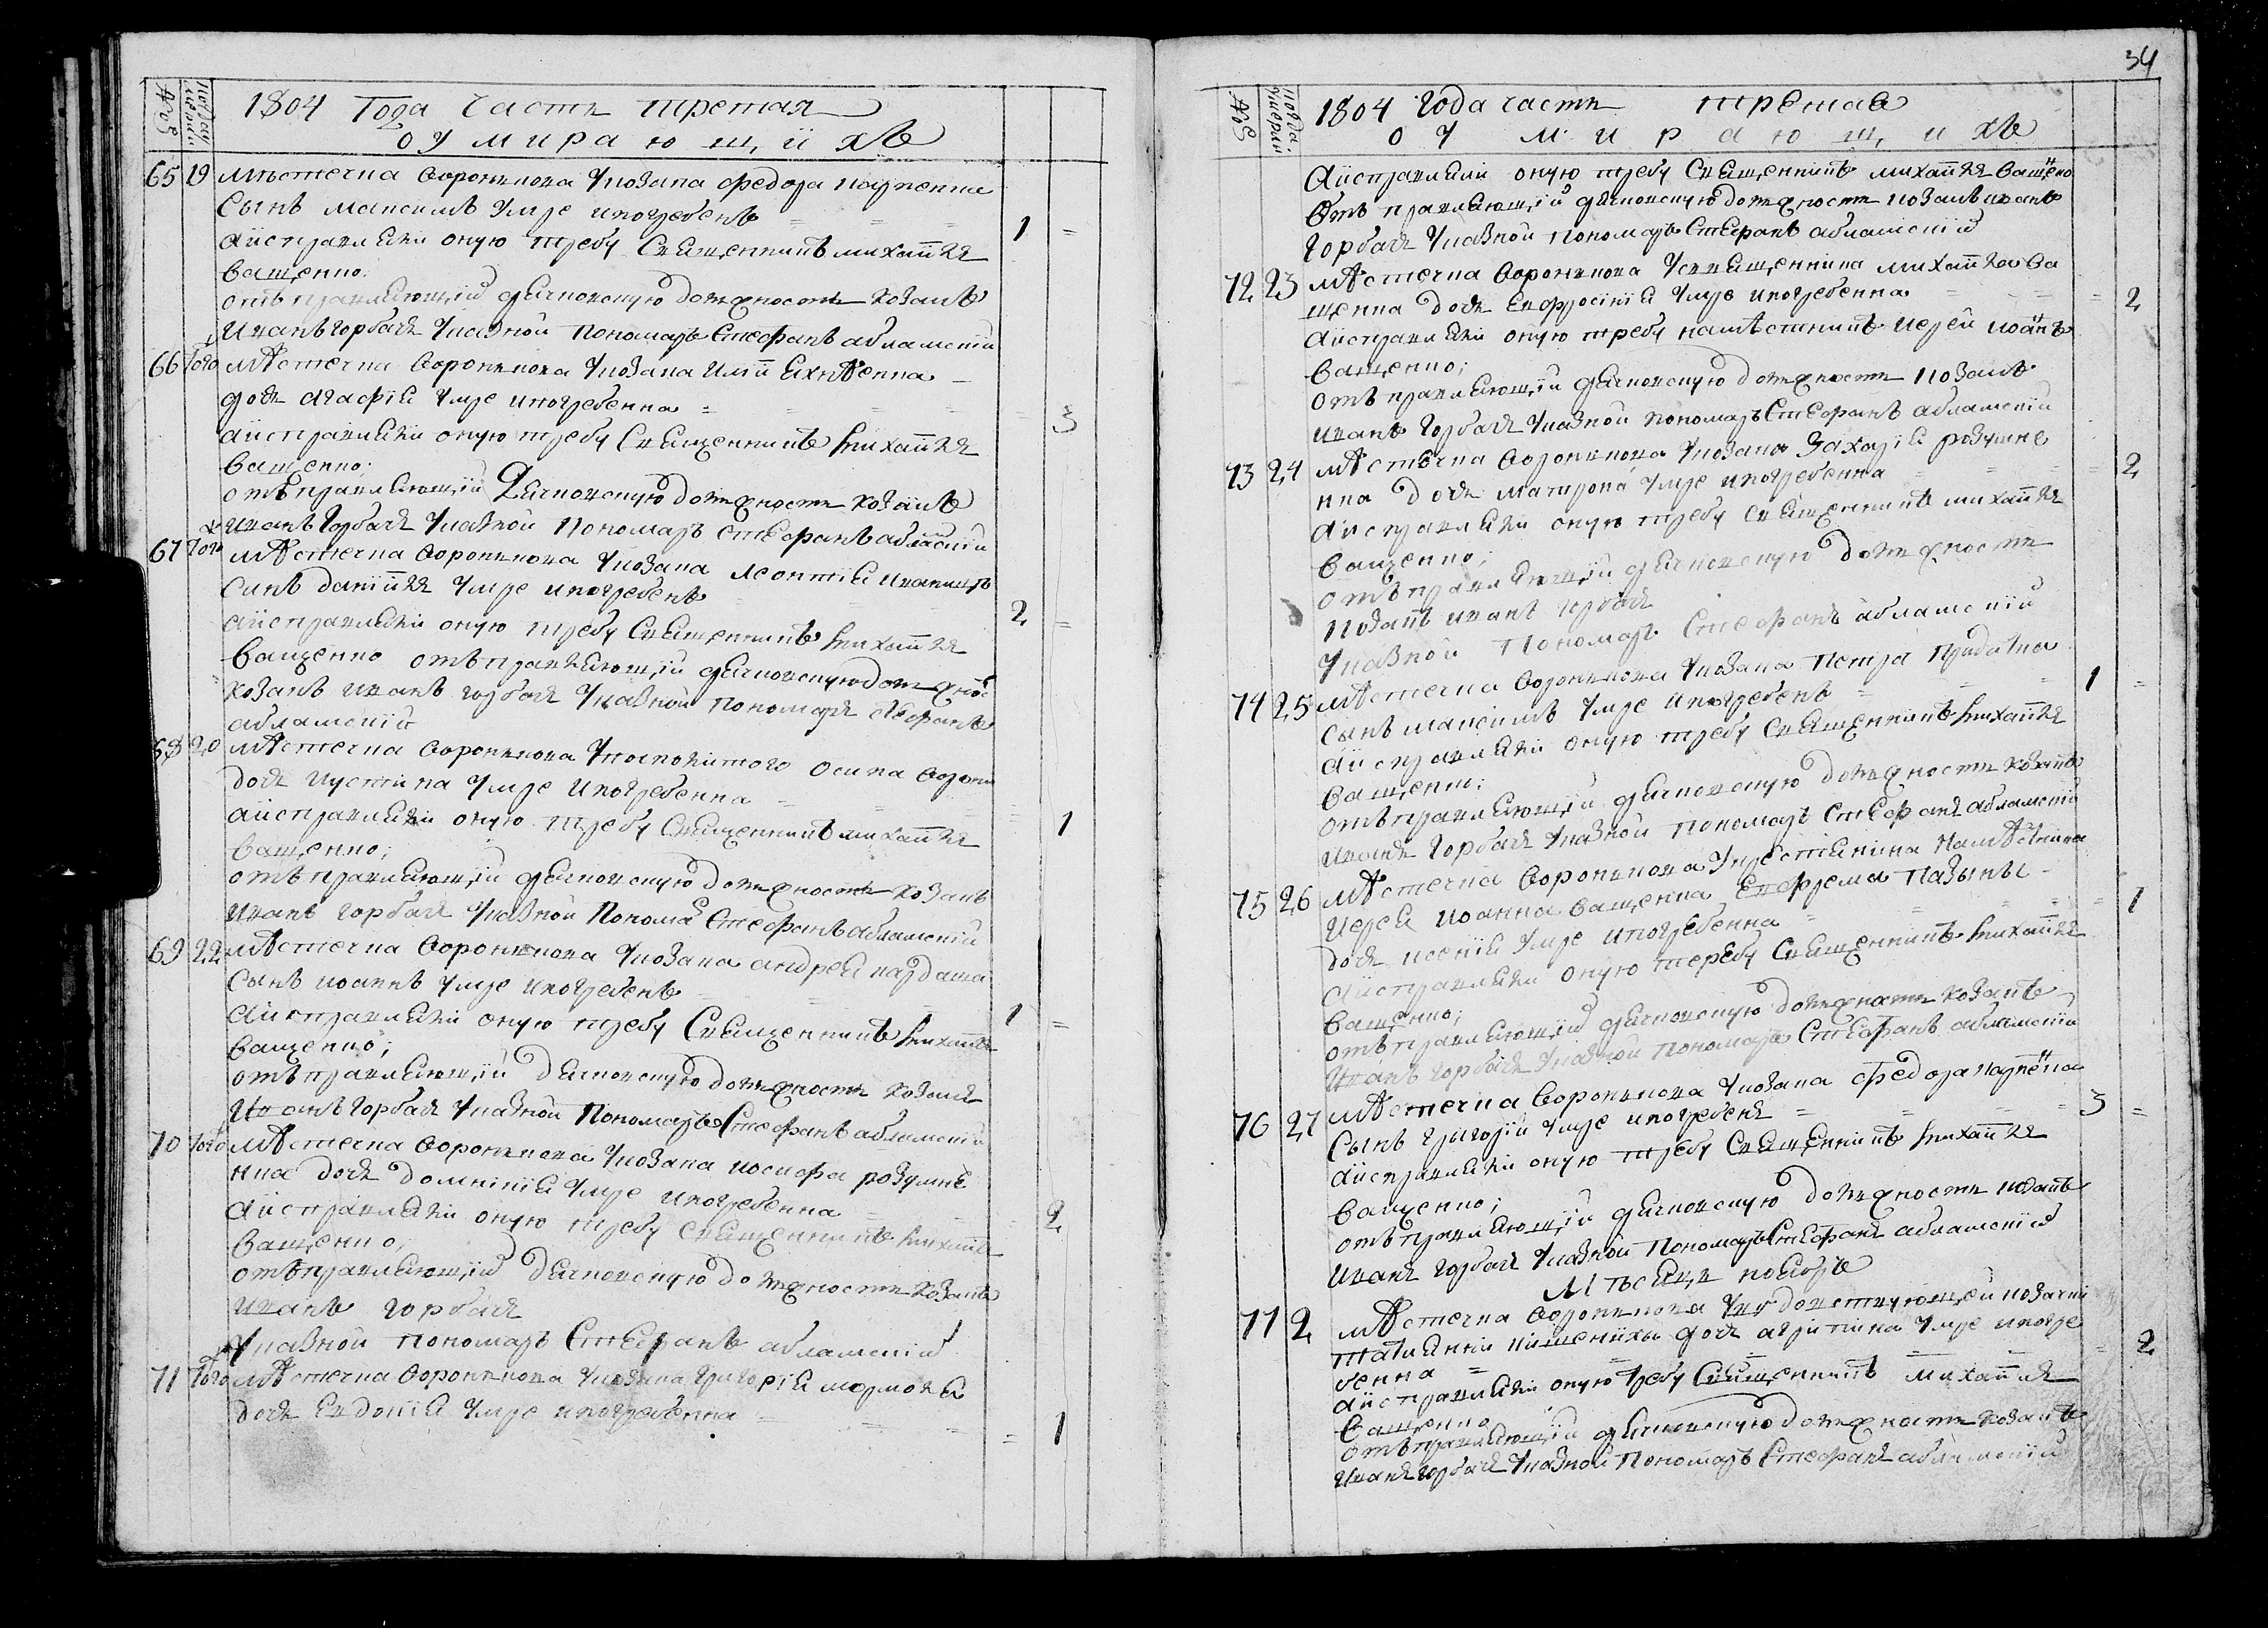 34
1804 Года Часть третая
о умирающихъ
65 19 местечка Воронкова Укозака Федора
Сынъ максимъ умре ипогребенъ = = = 1 =
аисправляли оную требу Священникъ михаилъ
Ващенко:
отъправляющiй дячковскую должность козакъ
Иванъ горбачъ указной пономаръ Стефанъ абламскiй
66 Того мѣстечка Воронкова Укозака Илiи
дочь агафiя умре ипогребенна = = = 3
аисправляли оную требу Священникъ михаилъ
Ващенко:
отъправляющiй Дячковскую должность козакъ
иванъ горбачъ указной пономаръ стефанъ абламскiй
67 Того мѣстечка Воронкова Укозака леонтiя
синъ данiилъ умре ипогребенъ 2 =
аисправляли оную требу Священникъ михаилъ
Ващенко отъправляющiй дячковскую должнос
козакъ иванъ горбачъ указной пономаръ стефанъ
абламскiй
68 20 мѣстечка Воронкова Упосполитого осипа
дочь иустина умре ипогребенна = = 1
аисправляли оную требу Священникъ михаилъ
Ващенко;
отъправляющiй дячковскую должность козакъ
иванъ горбачъ указной Понома Стефанъ абламскiй
69 22 мѣстечка Воронкова Укозака андрея
сынъ иоаннъ умре ипогребенъ = 1 =
аисправляли оную требу Священникъ михаилъ
Ващенко;
отъправляющiй дячковскую должность козакъ
Иванъ горбачъ указной Пономаръ Стефанъ абламскiй
70 Того мѣстечка Воронкова Укозака иосифа розумне
нка дочь домникiя умре ипогребенна = 2
аисправляли оную требу священникъ михаилъ
Ващенко,
отъправляющiй дячковскую должность козакъ
иванъ горбачъ
указной пономаръ Стефанъ абламскiй
71 Того мѣстечка Воронкова Укозака григорiя
дочь Евдокiя умре ипогребенна = = = 1
1804 года часть третая
о умирающихъ
аисправляли оную требу Священникъ михаилъ Ващенко
отъ правляющiй дячковскую должность козакъ иванъ
горбачъ указной пономаръ Стефанъ абламскiй
72 23 мѣстечка Воронкова Усвященника михаила Ва
щенка дочь Евфросiнiя умре ипогребенна = 2
аисправляли оную требу намѣстникъ иерей иоанъ
Ващенко;
отъ правляющiй дячковскую должность козакъ
иванъ горбачъ указной пономаръ Стефанъ абламскiй
73 24 мѣстечка Воронкова Укозака Захарiя розумне
нка дочь матрона умре ипогребенна = 2
аисправляли оную требу священникъ михаилъ
Ващенко;
отъправляющiй дячковскую должность
козакъ иванъ горбачъ
указной пономаръ Стефанъ абламскiй
74 25 мѣстечка Воронкова Укозака Петра
сынъ максимъ умре ипогребенъ = = = 1 =
аисправляли оную требу Священникъ михаилъ
Ващенко:
отъправляющiй дячковскую должность козакъ
иванъ горбачъ указной пономаръ Стефанъ абламскiй
75 26 мѣстечка Воронкова Укрестянина Намѣстника
иерея иоанна Ващенка Евфрема
дочь ксенiя умре ипогребенна = = = 1
аисправляли оную теребу Священникъ михаилъ
Ващенко;
отъправляющiй дячковскую должность козакъ
Иванъ горбачъ указной пономаръ Стефанъ абламскiй
76 27 мѣстечка Воронкова укозака Федора
Сынъ григорiй умре ипогребенъ = = = 3 =
аисправляли оную требу Священникъ михаилъ
Ващенко;
отъправляющiй дячковскую должность козакъ
Иванъ горбачъ указной пономаръ Стефанъ абламскiй
Мѣсяцъ ноябръ
77 2 мѣстечка Воронкова Увдовствующей козачки
татiянии дочь агрипина умре ипогре
бенна = = = 2
аисправляли оную требу Священникъ михаилъ
Ващенко
отъправляющiй дячковскую должность козакъ
Иванъ горбачъ указной Пономаръ Стефанъ абламскiй